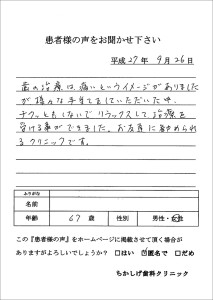 患者様の声をお聞かせ下さい
平成27年 9月26日
歯の治療は痛いというイメージがありました
が様々な手当てをしていただいた中、
チクッともしないでリラックスして治療を
受ける事ができました。お友達に勧められ
るクリニックです。
ふりがな
名前
年齢 67 歳 性別 男性・女性
この『患者様の声』をホームページに掲載させて頂く場合が
ありますがよろしいでしょうか? □はい ☑匿名で □だめ
ちかしげ歯科クリニック